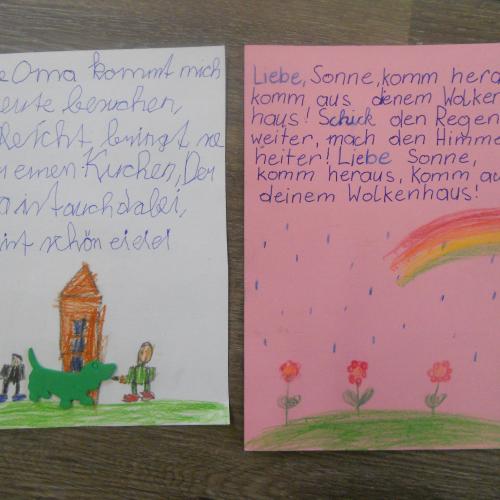 e Oma kommt mich
eute besuchen,
Reicht, bringt
einen Kuchen, Der
a ist auch dabei,
ist schön eidei
Liebe, Sonne, komm hera
komm aus denem Wolken
haus! Schick den Regen
weiter, mach den Himme
heiter! Liebe Sonne,
komm heraus, Komm au
deinem Wolkenhaus!